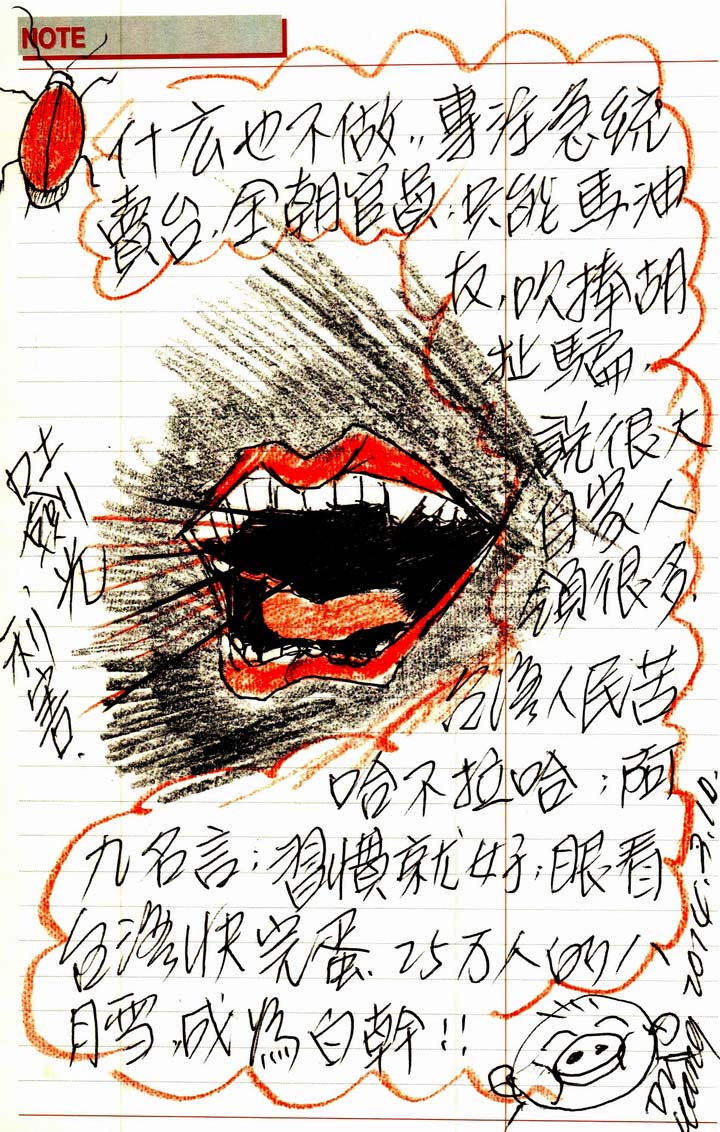 NOTE
什么也不做,,專注急統
賣台.全朝官員:只能馬油
友,吹捧胡
扯騙,
說很大
自家人
領很多.
台灣人民苦
哈不拉哈;阿
九名言;習慣就好;眼看
台灣快完蛋.25万人的八
月雪,成為白幹!!
吐劍光,
利害.
2014.3.10.